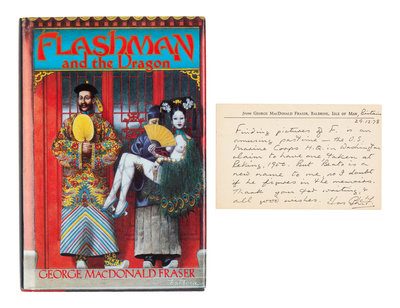 FLASHMAN
and the Dragon
GEORGE MACDONALD FRASER
from GEORGE MACDONALD FRASER, BALDRINE, ISLE OF MAN, Britain
29.12.78
Finding pictures of F. is an
amusing pastime — the U.S.
Marine Corps H.Q. in Washington
claim to have one taken at
Peking, 1900. But Beato is a
new name to me, so I doubt
if he figures in the memoirs.
Thank you for writing, &
all good wishes.